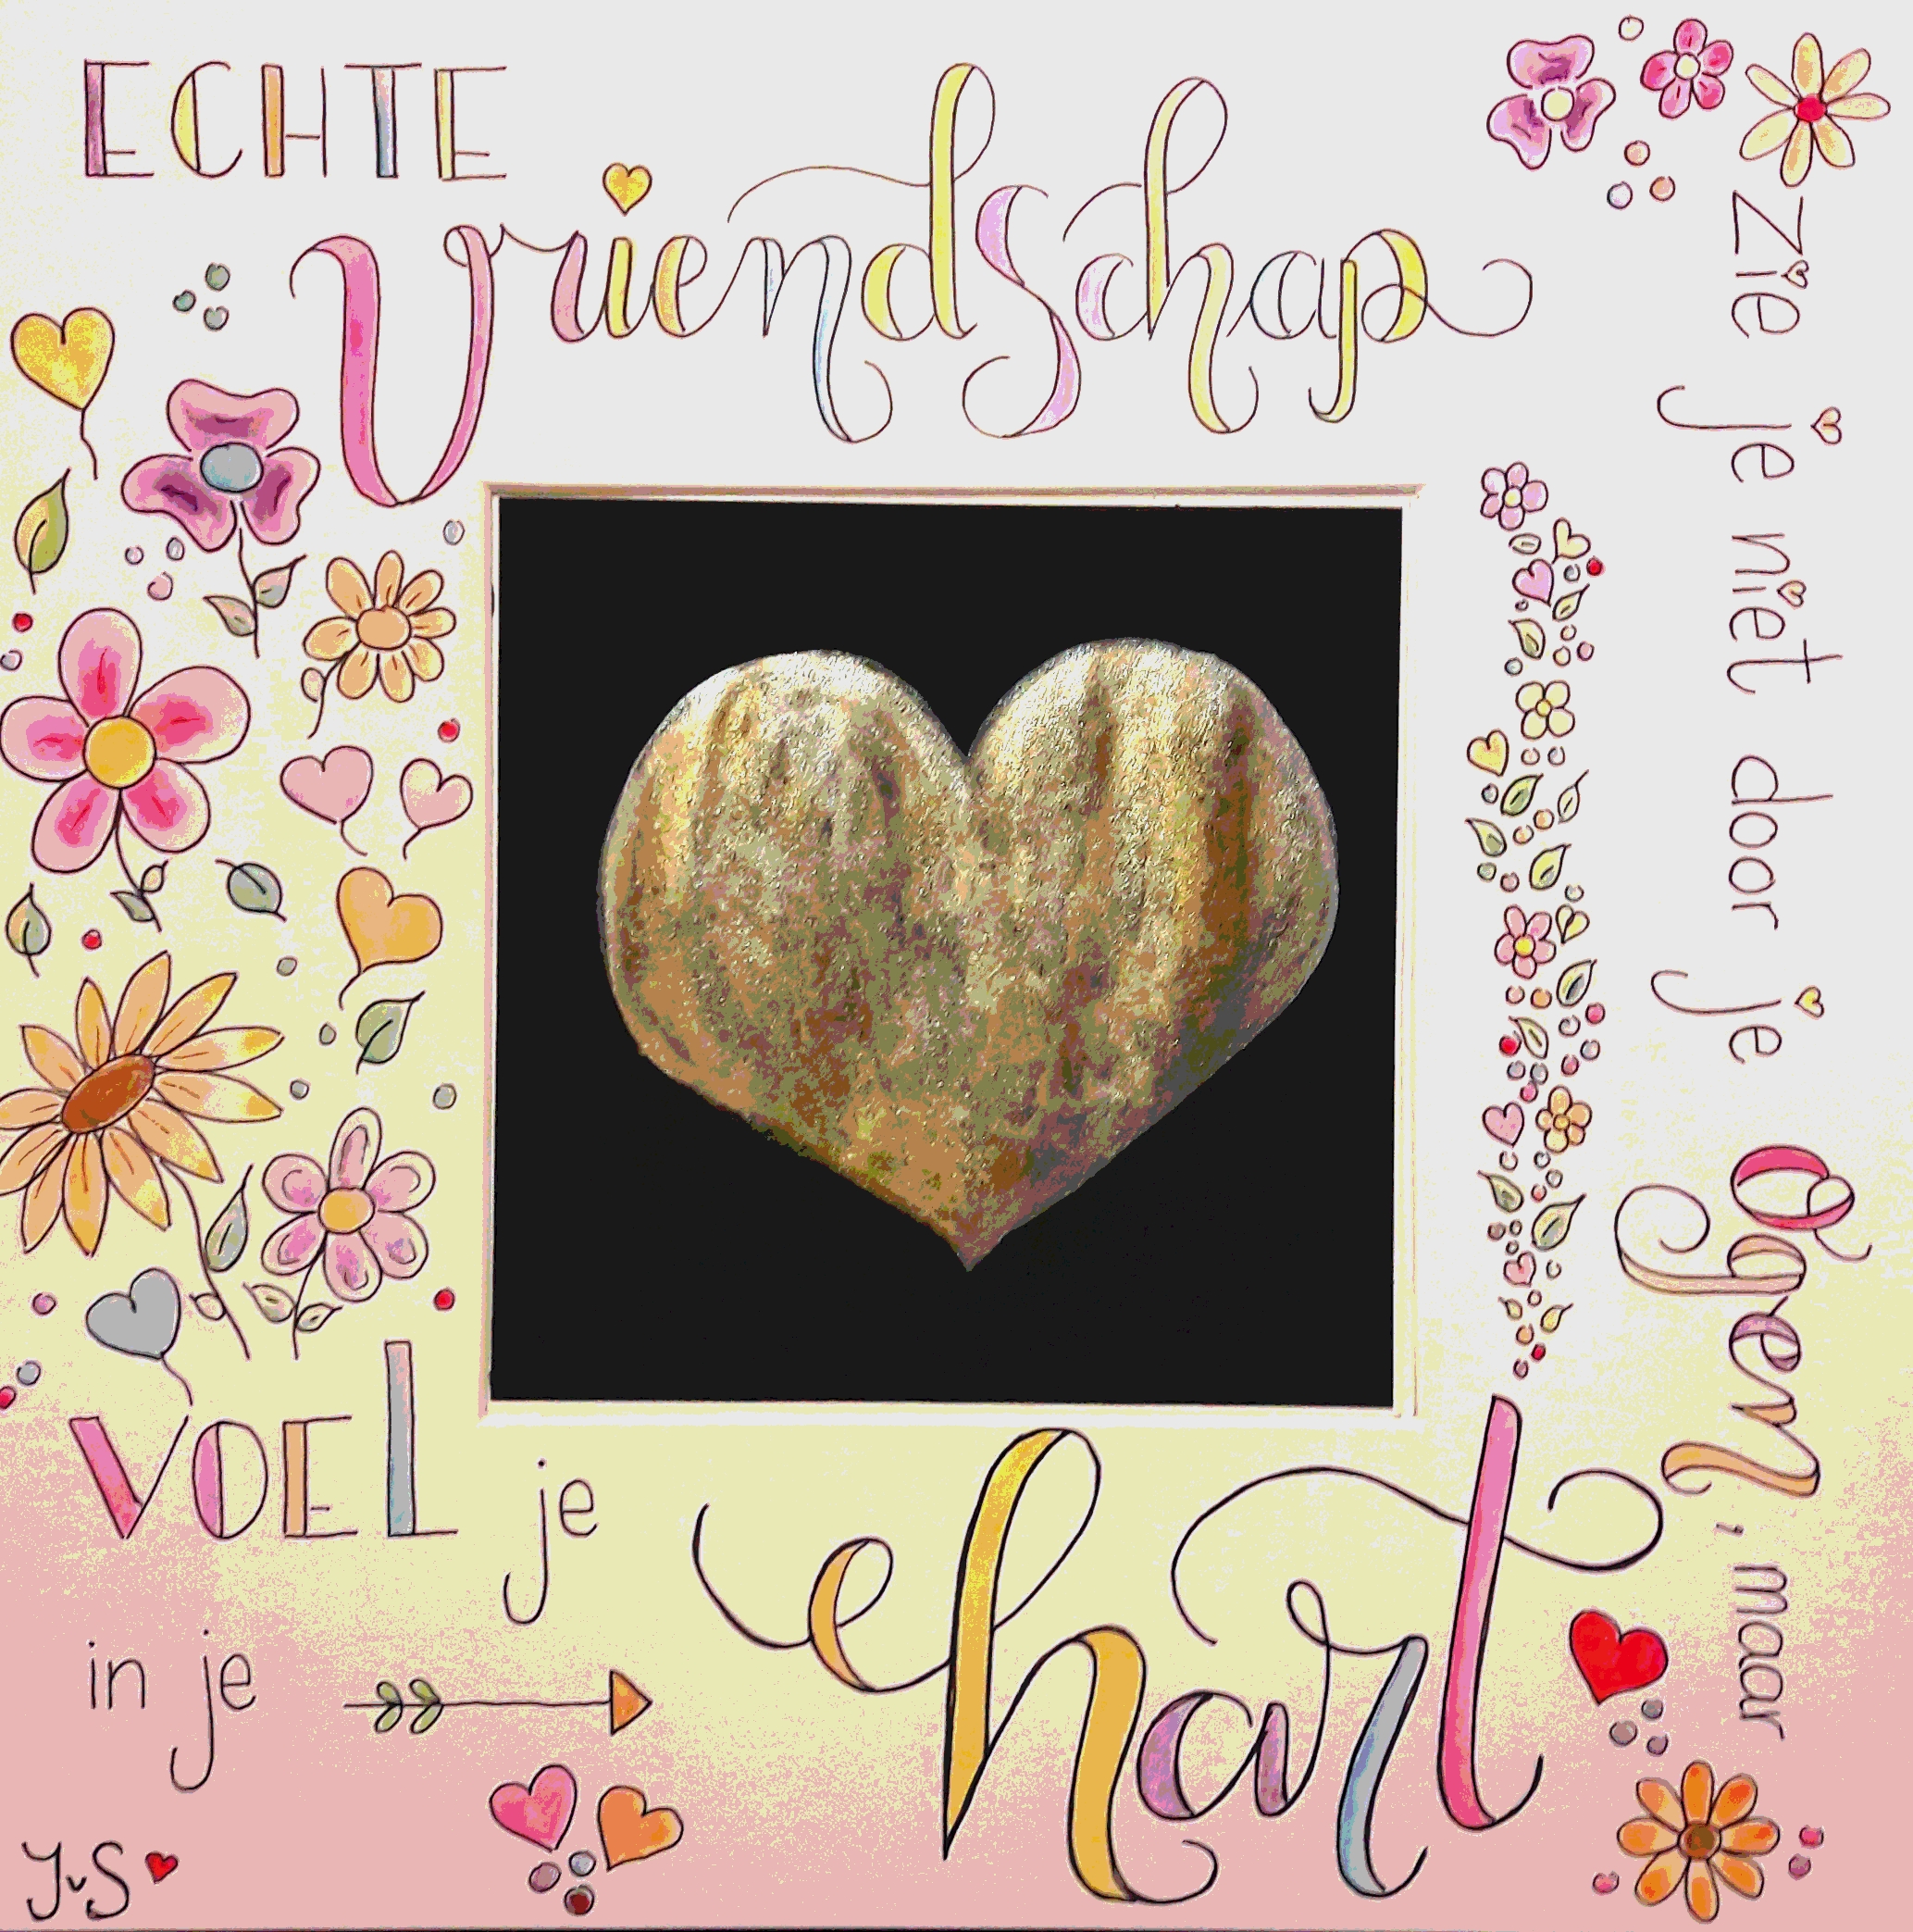 ECHTE
Vriendschap
zie je niet door je Ogen, maar
VOEL je
in je hart
JvS